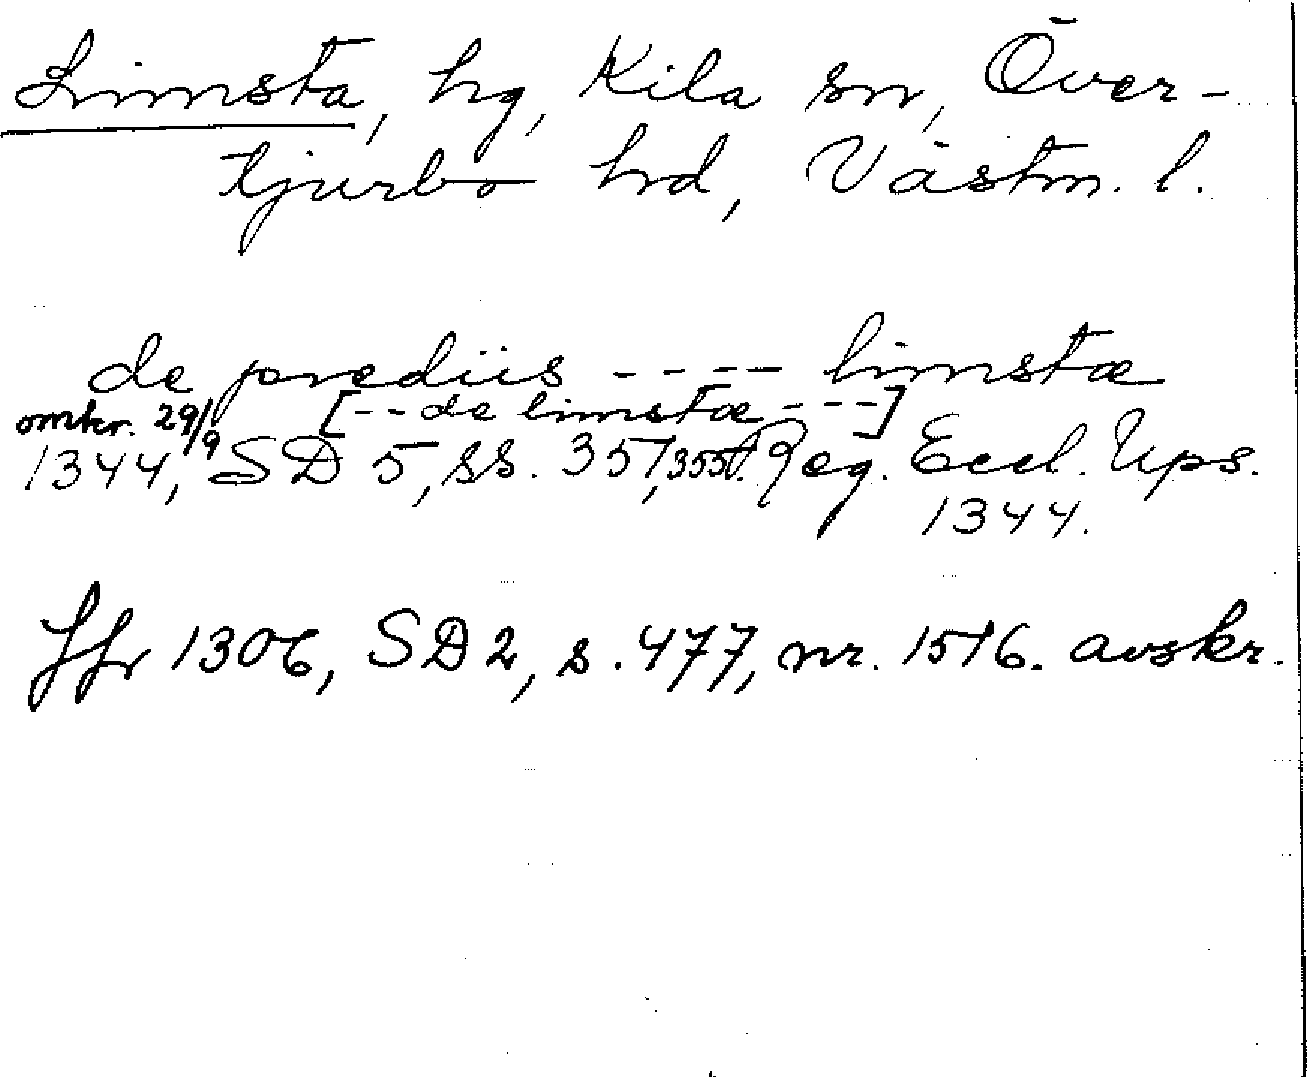 Limsta, hg, Kila sn, Över-
tjurbo hrd, Västm. l.
de prediis ---- limstæ
omkr. 29/9 [--de limstæ---]
1344, SD 5, ss. 357, 355f. Reg. Eccl. Ups.
1344.
Jfr 1306, SD 2, s. 477, nr. 1516. avskr.